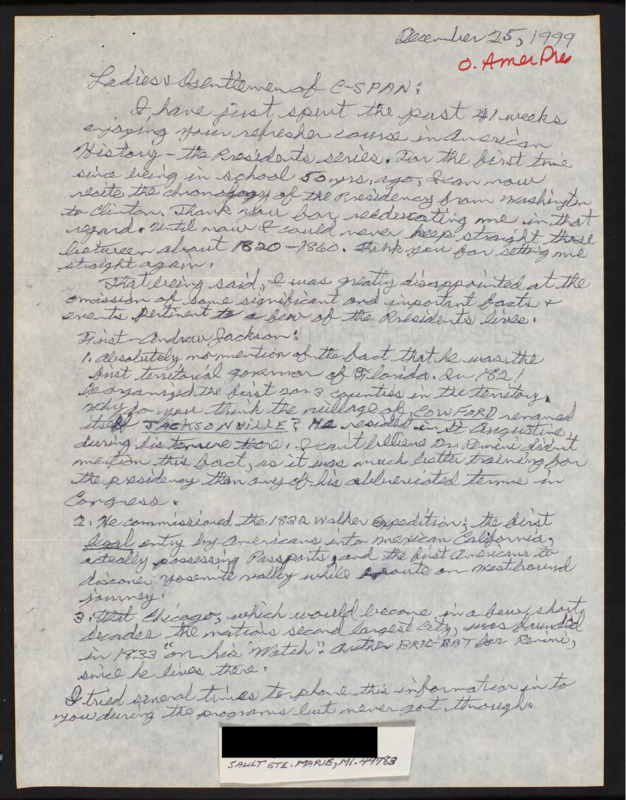 December 25, 1999
O. Amer Pres
Ladies & Gentlemen of C-SPAN:
I have just spent the past 41 weeks
enjoying your refresher course in American
History - the Presidents series. For the first time
since being in school 50 yrs. ago, I can now
recite the chronology of the Presidency from Washington
to Clinton. Thank you for reeducating me in that
regard. Until now I could never keep straight those
between about 1820-1860. Thank you for setting me
straight again.
That being said, I was greatly disappointed at the
omission of some significant and important facts &
events pertinent to a few of the Presidents lives.
First - Andrew Jackson:
1. Absolutely no mention of the fact that he was the
first territorial governor of Florida. In 1821
he organized the first 2 or 3 counties in the territory.
Why do you think the village of COWFORD renamed
itself JACKSONVILLE? He resided in St Augustine
during his tenure there. I can't believe Dr. Remini didn't
mention this fact, as it was much better training for
the presidency than any of his abbreviated terms in
Congress.
2. He commissioned the 1832 Walker Expedition; the first
legal entry by Americans into Mexican California,
actually possessing Passports, and the first Americans to
discover Yosemite Valley while enroute on westbound
journey.
3. That Chicago, which would become in a few short
decades the nations second largest City, was founded
in 1833 "on his Watch". Another BRIC-BAT for Remini,
since he lives there.
I tried several times to phone this information in to
you during the programs but never got through.
SAULT STE. MARIE, MI. 49783